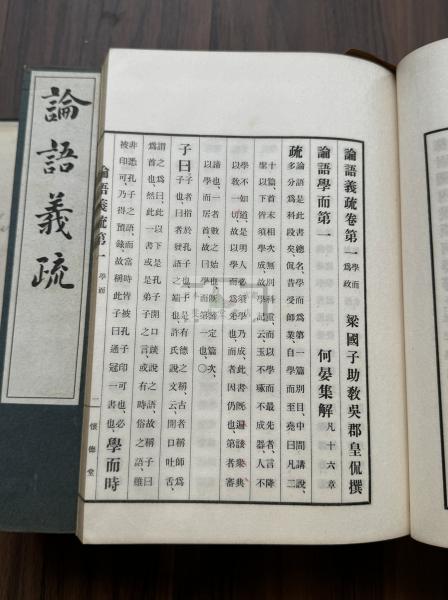 論語義疏卷第一 學而 為政 梁國子助教吳郡皇侃撰
論語學而第一 何晏集解 凡十六章
疏 論語是此書總名、學而為第一篇別目、中間講說、
多分為科段矣、侃昔受師業、自學而至堯曰凡二
十篇、首末相次無別科重、而以學而最先者、言降
聖以下皆須學成、故學記云、玉不琢不成器、人不
學不知道、是明人必須學乃成、此書既遍該衆典
以教一切、故以學而為先也、而者因仍也、第者審
諦也、一者數之始也、既諦定篇次、
以學而居首、故曰學而第一也、○
子曰 子者指於孔子也、子是有德之稱、古者稱師為
子也、曰者發語之端也、許氏說文云、開口吐舌
謂之為曰、此以下是孔子開口談說之語、故稱子曰
為首也、然此一書或是弟子之言或有時俗之語、雖
非悉孔子之語、而當時皆被孔子印可也、必
被印可、乃得預錄、故稱此子曰通冠一書也、學而時
論語義疏第一 學而 二 懷德堂
論語義疏